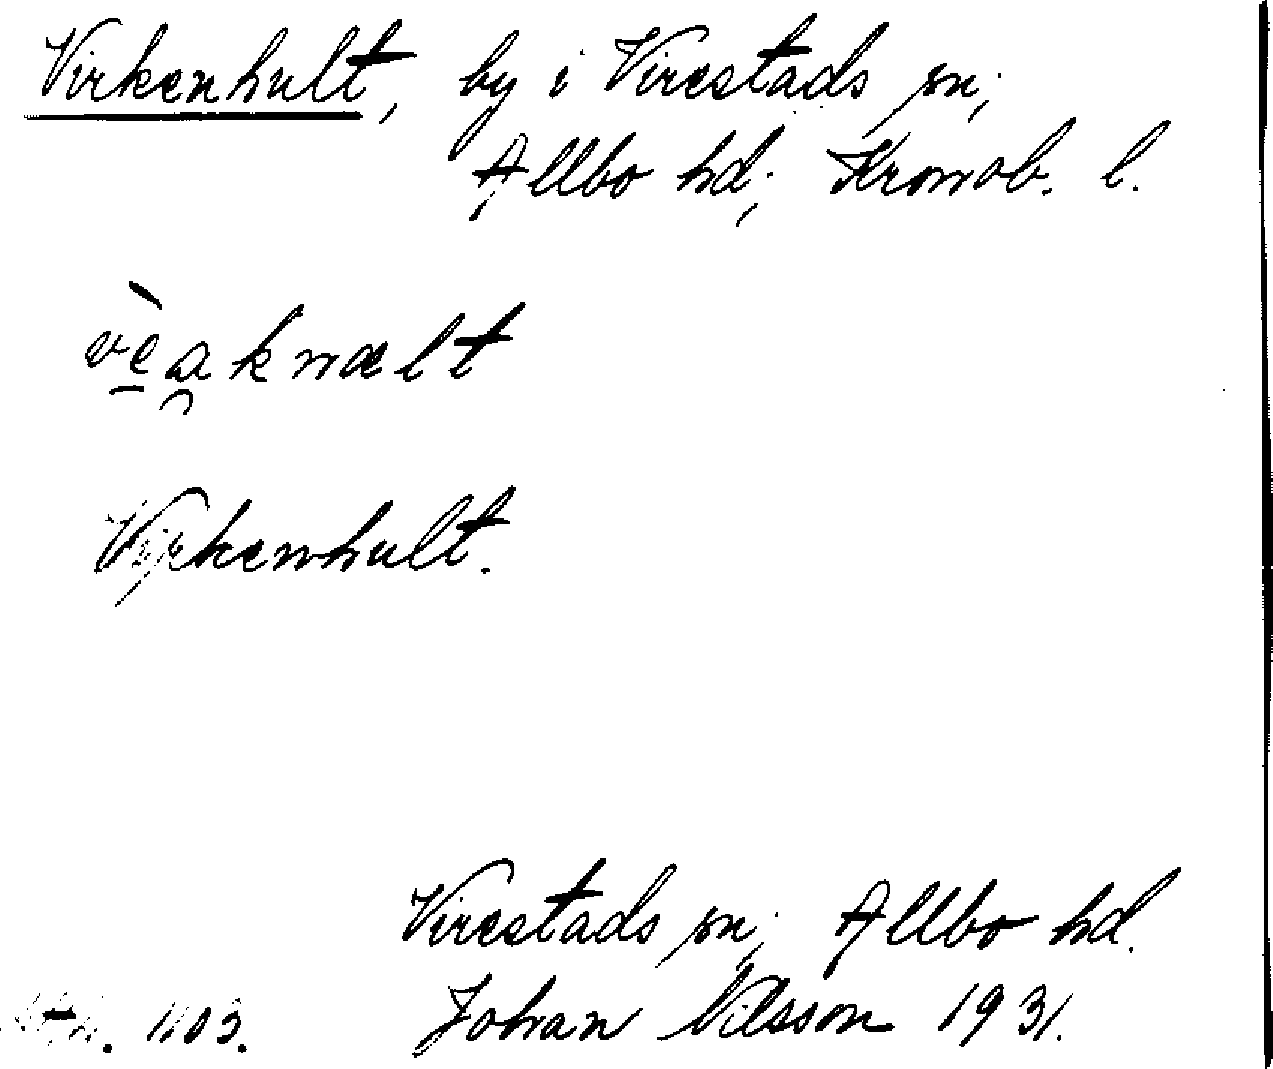 Virkenhult, by i Virestads sn;
Allbo hd; Kronob. l.
vèa̯knɶlt
Virkenhult.
Virestads sn; Allbo hd.
1103. Johan Nilsson 1931.